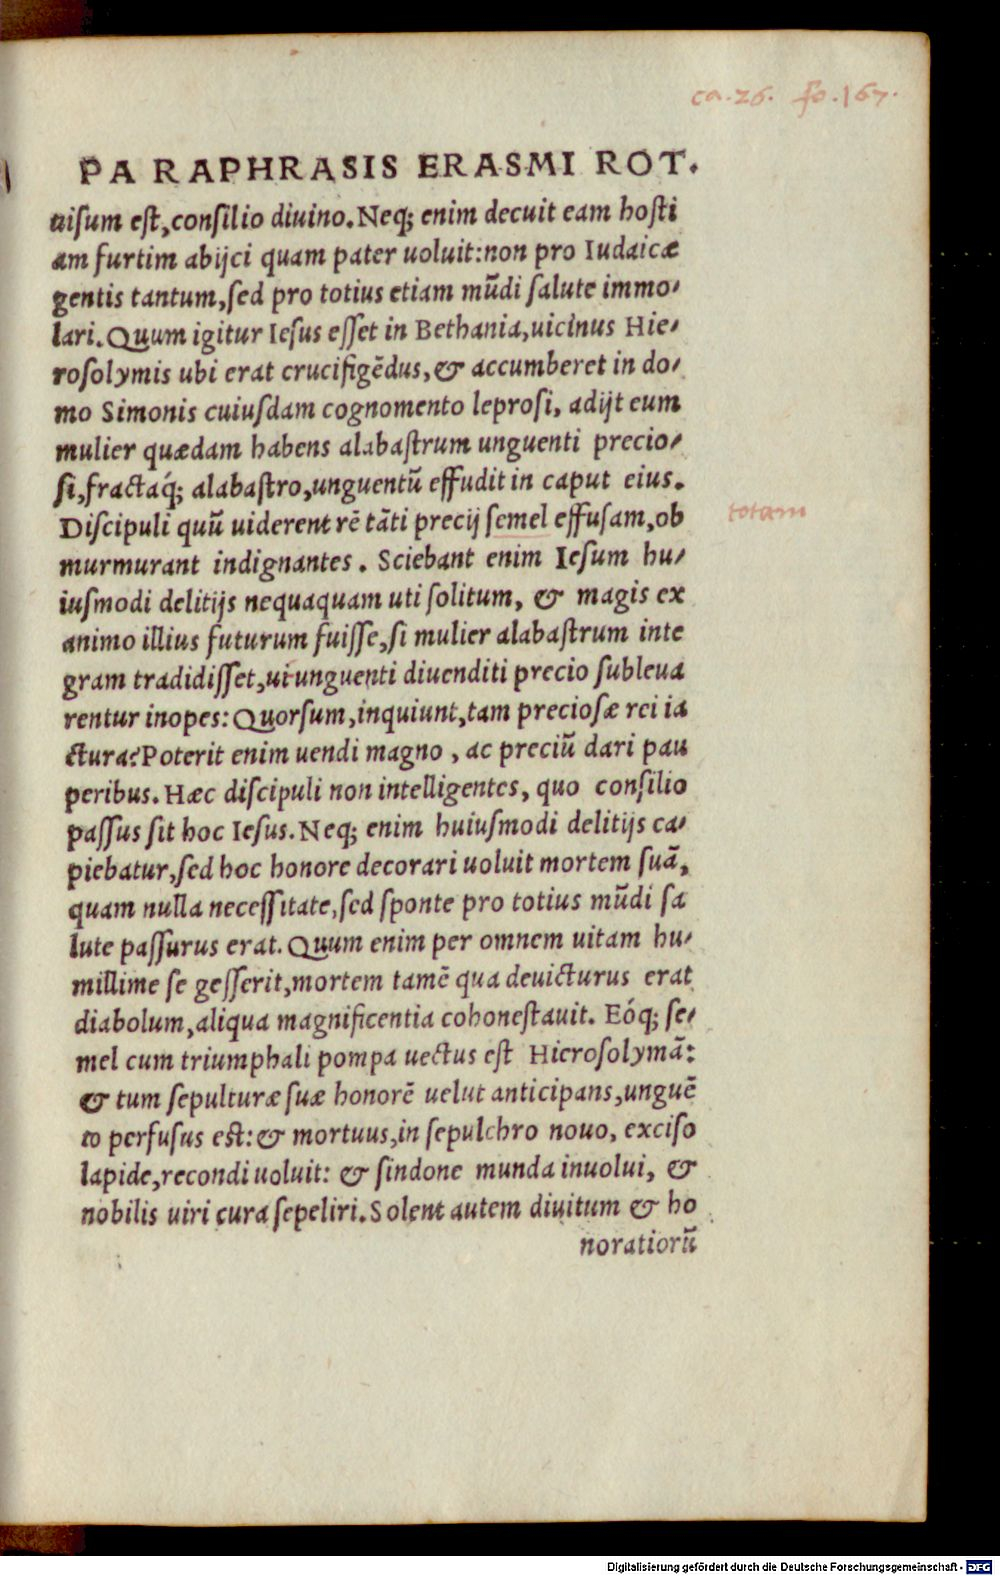 ca.26. fo.167.
PARAPHRASIS ERASMI ROT.
uisum est, consilio diuino. Neq; enim decuit eam hosti
am furtim abijci quam pater uoluit: non pro Iudaicæ
gentis tantum, sed pro totius etiam mũdi salute immo-
lari. Quum igitur Iesus esset in Bethania, uicinus Hie-
rosolymis ubi erat crucifigẽdus, & accumberet in do-
mo Simonis cuiusdam cognomento leprosi, adijt eum
mulier quædam habens alabastrum unguenti precio-
si, fractaq́; alabastro, unguentũ effudit in caput eius.
Discipuli quũ uiderent rẽ tãti precij semel effusam, ob
totam
murmurant indignantes. Sciebant enim Iesum hu-
iusmodi delitijs nequaquam uti solitum, & magis ex
animo illius futurum fuisse, si mulier alabastrum inte
gram tradidisset, ut unguenti diuenditi precio subleua
rentur inopes: Quorsum, inquiunt, tam preciosæ rei ia
ctura? Poterit enim uendi magno, ac preciũ dari pau
peribus. Hæc discipuli non intelligentes, quo consilio
passus sit hoc Iesus. Neq; enim huiusmodi delitijs ca-
piebatur, sed hoc honore decorari uoluit mortem suã,
quam nulla necessitate, sed sponte pro totius mũdi sa
lute passurus erat. Quum enim per omnem uitam hu-
millime se gesserit, mortem tamẽ qua deuicturus erat
diabolum, aliqua magnificentia cohonestauit. Eóq; se-
mel cum triumphali pompa uectus est Hierosolymã:
& tum sepulturæ suæ honorẽ uelut anticipans, unguẽ
to perfusus est: & mortuus, in sepulchro nouo, exciso
lapide, recondi uoluit: & sindone munda inuolui, &
nobilis uiri cura sepeliri. Solent autem diuitum & ho
noratiorũ
Digitalisierung gefördert durch die Deutsche Forschungsgemeinschaft - DFG